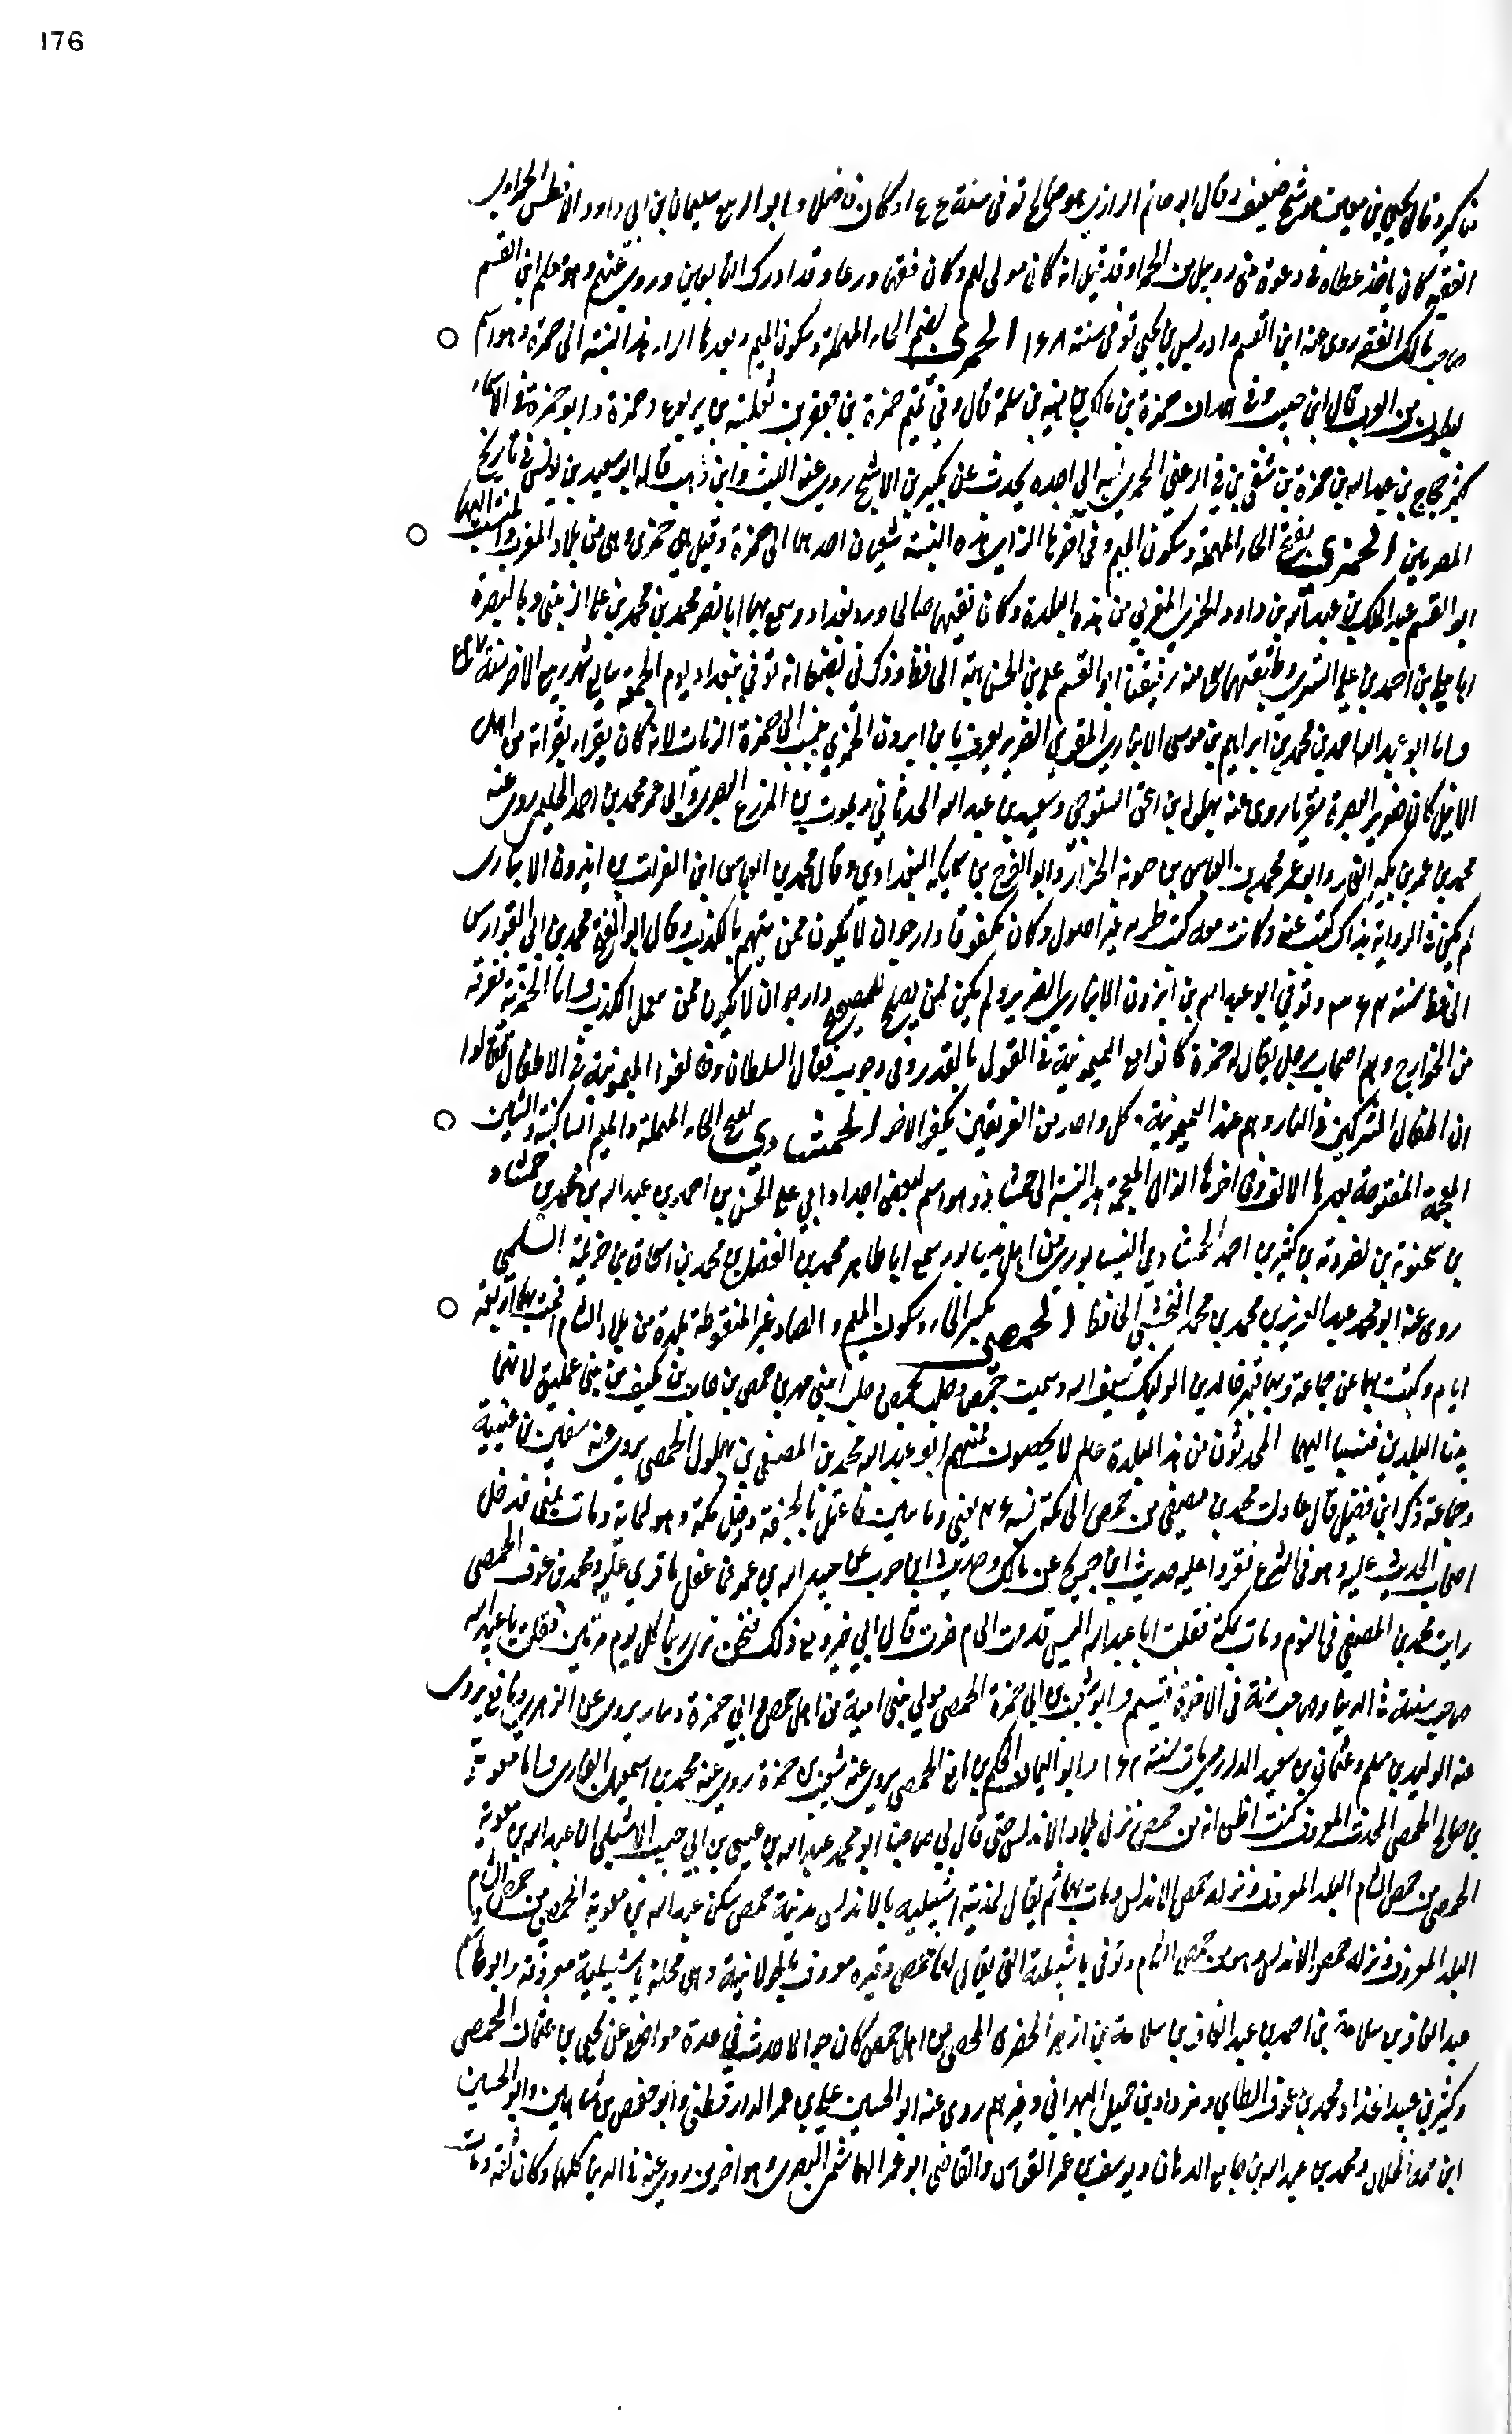 176
مناكير وقال يحيى بن معين هو شيخ ضعيف وقال ابو حاتم الرازي هو صالح توفى سنة وكان فاضلا وابو الربيع سليمان بن ابى داود الافطس الحمراوى
الفقيه كان ياخذ عطاه فى دعوة بنى روبيل من الحمرا وقد قيل انه كان مولى لهم وكان فقيها ورعا وقد ادرك التابعين وروى عنهم وهو معلم ابن القسم
صاحب مالك الفقه روى عنه ابن القسم وادريس بن يحيى توفى سنة ١٦٨ الحمرى بضم الحاء المهملة وسكون الميم وبعدها الراء هذه النسبة الى حمرة وهو اسم
لبطون من العرب قال ابن حبيب وفى همدان حمرة بن مالك بن منبه بن سلمة قال وفى تميم حمرة بن جعفر بن ثعلبة بن يربوع وحمزة وابو حمزة فى الاسماء
كثير حجاج بن عبد الله بن حمرة بن شفى بن رقى الرعينى الحمرى نسبه الى جده يحدث عن بكير بن الاشج روى عنه الليث وابن وهب قاله ابو سعيد بن يونس فى تاريخ
المصريين الحمزى بفتح الحاء المهملة وسكون الميم وفى آخرها الزاى هذه النسبة لشيئين احدهما الى حمزة وقيل هى حمزى وهى من بلاد المغرب والمنتسب اليها
ابو القسم عبد الملك بن عبد الله بن داود الحمزى المغربى من هذه البلدة وكان فقيها صالحا ورد بغداد وسمع بها ابا نصر محمد بن محمد بن على الزينبى وبالبصرة
ابا على بن احمد بن على التسترى وطبقتهما سمع منه رفيقنا ابو القسم على بن الحسن هبة الله الحافظ وذكر لى بعضهم انه توفى ببغداد يوم الجمعة شهر ربيع الاخر سنة
واما ابو عبد الله احمد بن محمد بن ابراهيم بن موسى الانبارى المقرى الضرير يعرف بابن ابزون الحمزى ينسب الى حمزة الزيات لانه كان يقراء بقراته من اهل
الانبار كان ضرير البصر مقريا روى عنه بهلول بن اسحق التنوخى وسعيد بن عبد الله الحدثانى ويموت بن المزرع البصرى وابى عمر محمد بن احمد الحليمى روى عنه
محمد بن عمر بن بكير النجار وابو عمر محمد بن العباس بن حيويه الخزاز وابو الفرج بن سميكه البغدادى وقال محمد بن العباس ابن الفرات بن ابزون الانبارى
لم يكن فى الرواية بذاك كتبت عنه وكانت معه كتب طرية غير اصول وكان مكفوفا وارجو ان لا يكون ممن يتهم بالكذب وقال ابو الفتح محمد بن ابى الفوارس
الحافظ سنة ٣٦٤ توفى ابو عبد الله بن ابزون الانبارى الضرير ولم يكن ممن يصلح للصحيح وارجو ان لا يكون ممن يعمل الكذب واما الحمزية فرقة
من الخوارج وهم اصحاب رجل يقال له حمزة كانوا مع الميمونية فى القول بالقدر وفى وجوب قتال السلطان وخالفوا الميمونية فى الاطفال فقالوا
ان اطفال المشركين فى النار وهم عند الميمونية كل واحد من الفريقين يكفر الاخر الحمشادى بفتح الحاء المهملة والميم الساكنة والشين
المعجمة المفتوحة بعدها الالف وفى اخرها الذال المعجمة هذه النسبة الى حمشاذ وهو اسم لبعض اجداد ابى على الحسن بن احمد بن عبد الله بن محمد بن حمشاد
بن سختويه بن نصرويه بن كثير بن احمد الحمشادى النيسابورى من اهل نيسابور سمع ابا طاهر محمد بن الفضل بن محمد بن اسحاق بن خزيمة السلمى
روى عنه ابو محمد عبد العزيز بن محمد بن محمد النخشبى الحافظ الحمصى بكسر الحاء وسكون الميم والصاد غير المنقوطة بلدة من بلاد الشام اقمت بها اربعة
ايام وكتبت بها عن جماعة وبها قبر خالد بن الوليد سيف الله وسميت حمص وحلب بحمص وحلب ابنى مهر بن حمص بن حاف بن مكنف من بنى عمليق لانهما
بنيا البلدين فنسبا اليهما المحدثون من هذه البلدة عالم لا يحصون منهم ابو عبد الله محمد بن المصفى بن بهلول الحمصى يروى عنه سفين بن عيينة
وجماعة ذكر ابن فضيل قال عادلت محمد بن مصفى من حمص الى مكة سنة ٢٤٦ يعنى ومايتين فاعتل بالجحفة ودخل مكة وهو لما به ومات بمنى فدخل
اصحاب الحديث عليه وهو فى النزع فقروا عليه حديث ابن جريج عن مالك وحديث ابن حرب عن عبيد الله بن عمر فما عقل ما قرى عليه ومحمد بن عوف الحمصى
رايت محمد بن المصفى فى النوم ومات بمكة فقلت ابا عبد الله اليس قد مت الى م صرت قال الى خير ومع ذلك فنحن نرى ربنا كل يوم مرتين فقلت يا با عبد الله
صاحب سنة فى الدنيا وصاحب سنة فى الاخرة فتبسم وابو شعيب بن ابى حمزة الحمصى مولى بنى امية من اهل حمص ابى حمزة دينار يروى عن الزهرى ونافع يروى
عنه الوليد بن مسلم وعثمان بن سعيد الدارمى مات سنة ١٦٢ وابو اليمان الحكم بن نافع الحمصى يروى عنه شعيب بن حمزة روى عنه محمد بن اسمعيل البخارى واما معوية
بن صالح الحمصى المحدث المعروف كنت اظن انه من حمص نزل بلاد الاندلس حتى قال لى صاحبنا ابو محمد عبد الله بن عيسى بن ابى حبيب الاشبيلى ان عبد الله بن معوية
الحمصى من حمص الشام البلد المعروف ونزله حمص الاندلس ومات بها ثم يقال لمدينة اشبيلية بالاندلس مدينة حمص سكن عبد الله بن معوية الحمصى من حمص الشام
البلد المعروف ونزله حمص الاندلس وهو من حمص الشام وتوفى باشبيلية التى يقال لها حمص وقبره معروف بالجولانية وهى محلة باشبيلية معروفة وابو هاشم
عبد الغافر بن سلامة بن احمد بن عبد الغافر بن سلامة بن ازهر الحضرمى الحمصى من اهل حمص كان جوالا حدث فى عدة مواضع عن يحيى بن عثمان الحمصى
وكثير بن عبيد الحذاء ومحمد بن عوف الطايى ومزداد بن جميل البهرانى وغيرهم روى عنه ابو الحسين على بن عمر الدارقطنى وابو حفص بن شاهين وابو الحسين
ابن حمة الخلال ومحمد بن عبد الله بن جامع الدهان ويوسف بن عمر القواس والقاضى ابو عمر الهاشمى البصرى وهو اخر من روى عنه فى الدنيا كلها وكان ثقة ومات